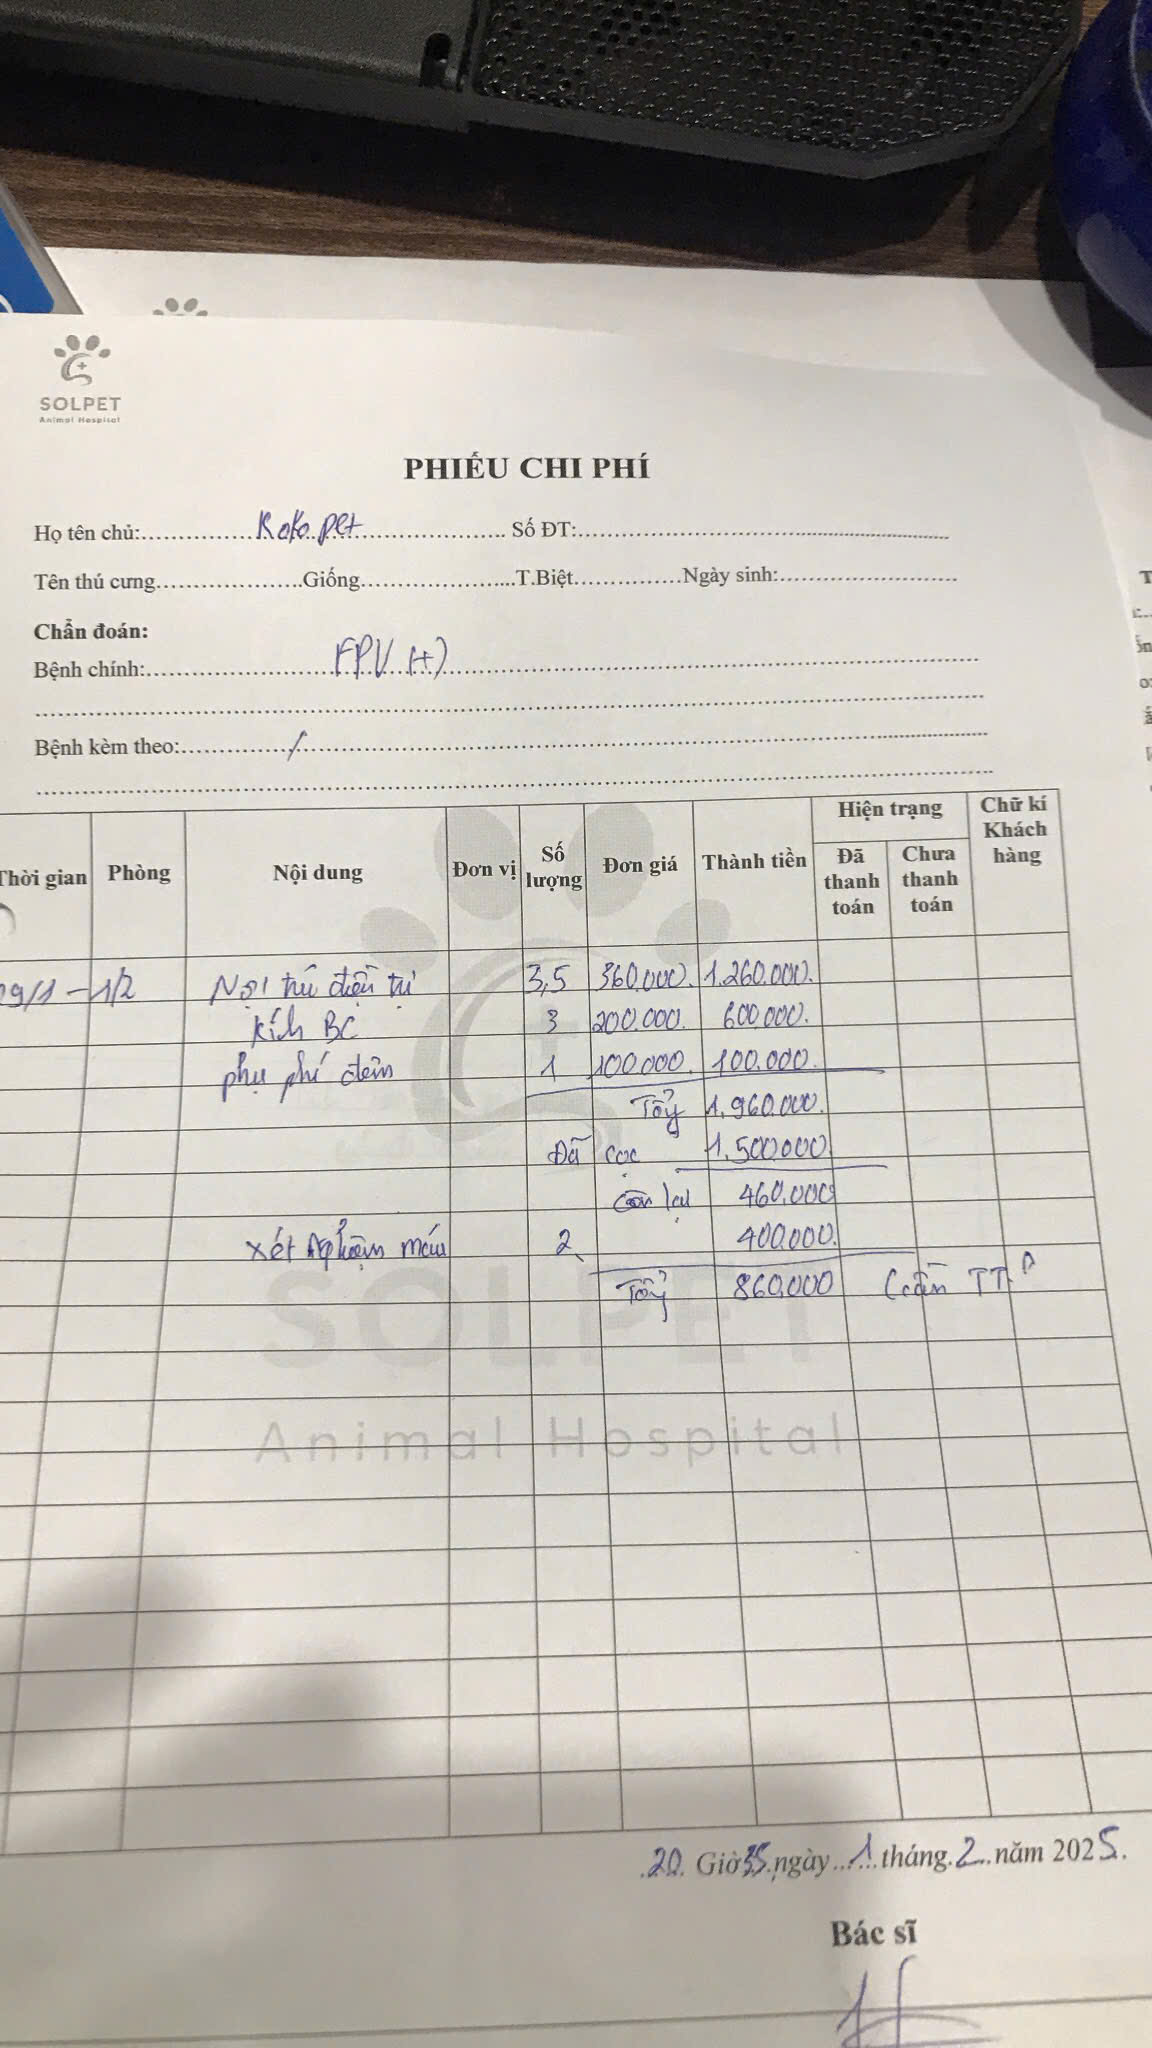 SOLPET
Animal Hospital
PHIẾU CHI PHÍ
Họ tên chủ:.......... Koko pet .......... Số ĐT:..........
Tên thú cưng..........Giống..........T.Biệt..........Ngày sinh:..........
Chẩn đoán:
Bệnh chính:.......... FPV (+) ..........
Bệnh kèm theo:.......... / ..........
Thời gian Phòng Nội dung Đơn vị Số lượng Đơn giá Thành tiền Hiện trạng Đã thanh toán Chưa thanh toán Chữ kí Khách hàng
29/1 - 1/2 Nội trú điều trị 3,5 360.000. 1.260.000.
Kích BC 3 200.000. 600.000.
phụ phí đêm 1 100.000. 100.000.
Tổng 1.960.000.
Đã cọc 1.500.000
Còn lại 460.000
Xét nghiệm máu 2 400.000.
Tổng 860.000 (cần TT)
SOLPET
Animal Hospital
.20. Giờ 35 ngày ...1... tháng.2..năm 2025.
Bác sĩ